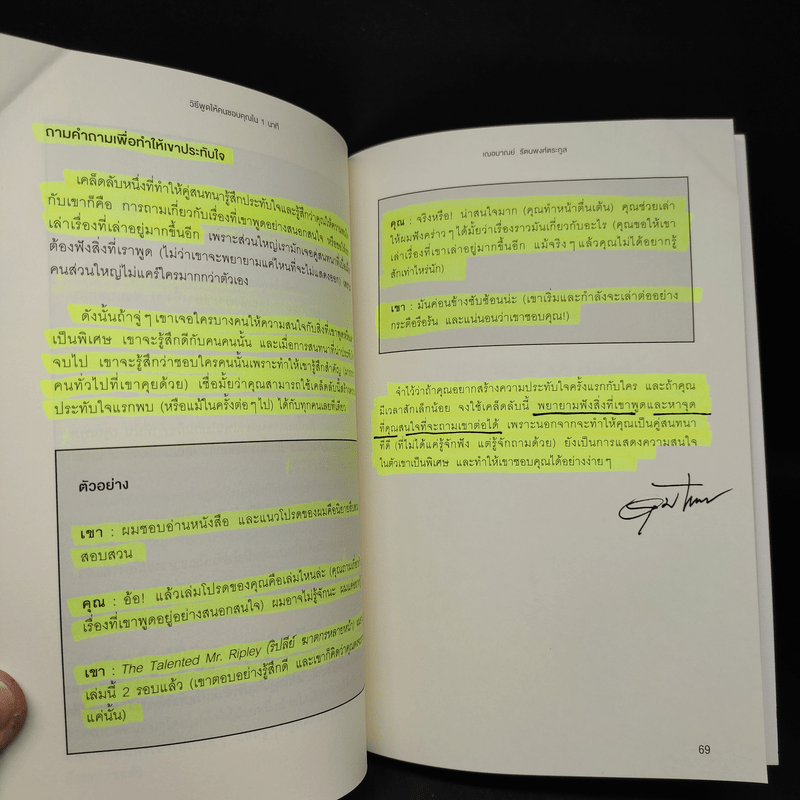 วิธีพูดให้คนชอบคุณใน 1 นาที
ถามคำถามเพื่อทำให้เขาประทับใจ
เคล็ดลับหนึ่งที่ทำให้คู่สนทนารู้สึกประทับใจและรู้สึกว่าคุณให้ความสนใจ
กับเขาก็คือ การถามเกี่ยวกับเรื่องที่เขาพูดอย่างสนอกสนใจ หรือขอให้เขา
เล่าเรื่องที่เล่าอยู่มากขึ้นอีก เพราะส่วนใหญ่เรามักเจอคู่สนทนาที่
ต้องฟังสิ่งที่เราพูด (ไม่ว่าเขาจะพยายามแค่ไหนที่จะไม่แสดงออก) เพราะ
คนส่วนใหญ่ไม่แคร์ใครมากกว่าตัวเอง
ดังนั้นถ้าจู่ๆ เขาเจอใครบางคนให้ความสนใจกับสิ่งที่เขาพูด
เป็นพิเศษ เขาจะรู้สึกดีกับคนคนนั้น และเมื่อการสนทนาที่น่าประทับใจ
จบไป เขาจะรู้สึกว่าชอบใครคนนั้นเพราะทำให้เขารู้สึกสำคัญ
คนทั่วไปที่เขาคุยด้วย) เชื่อมั้ยว่าคุณสามารถใช้เคล็ดลับนี้สร้างความ
ประทับใจแรกพบ (หรือแม้ในครั้งต่อๆ ไป) ได้กับทุกคนเลยทีเดียว
ตัวอย่าง
เขา : ผมชอบอ่านหนังสือ และแนวโปรดของผมคือนิยายสืบสวน
สอบสวน
คุณ : อ้อ! แล้วเล่มโปรดของคุณคือเล่มไหนล่ะ (คุณถามเกี่ยวกับ
เรื่องที่เขาพูดอยู่อย่างสนอกสนใจ) ผมอาจไม่รู้จักนะ
เขา : The Talented Mr. Ripley (ริปลีย์ ฆาตกรหลายหน้า)
เล่มนี้ 2 รอบแล้ว (เขาตอบอย่างรู้สึกดี และเขาก็คิดว่าคุณ
แค่นั้น)
เฌอมาณย์ รัตนพงศ์ตระกูล
คุณ : จริงหรือ! น่าสนใจมาก (คุณทำหน้าตื่นเต้น) คุณช่วยเล่า
ให้ผมฟังคร่าวๆ ได้มั้ยว่าเรื่องราวมันเกี่ยวกับอะไร (คุณขอให้เขา
เล่าเรื่องที่เขาเล่าอยู่มากขึ้นอีก แม้จริงๆ แล้วคุณไม่ได้อยากรู้
สักเท่าไหร่นัก)
เขา : มันค่อนข้างซับซ้อนน่ะ (เขาเริ่มและกำลังจะเล่าต่ออย่าง
กระตือรือร้น และแน่นอนว่าเขาชอบคุณ!)
จำไว้ว่าถ้าคุณอยากสร้างความประทับใจครั้งแรกกับใคร และถ้าคุณ
มีเวลาสักเล็กน้อย จงใช้เคล็ดลับนี้ พยายามฟังสิ่งที่เขาพูดและหาจุด
ที่คุณสนใจที่จะถามเขาต่อได้ เพราะนอกจากจะทำให้คุณเป็นคู่สนทนา
ที่ดี (ที่ไม่ได้แค่รู้จักฟัง แต่รู้จักถามด้วย) ยังเป็นการแสดงความสนใจ
ในตัวเขาเป็นพิเศษ และทำให้เขาชอบคุณได้อย่างง่ายๆ
69